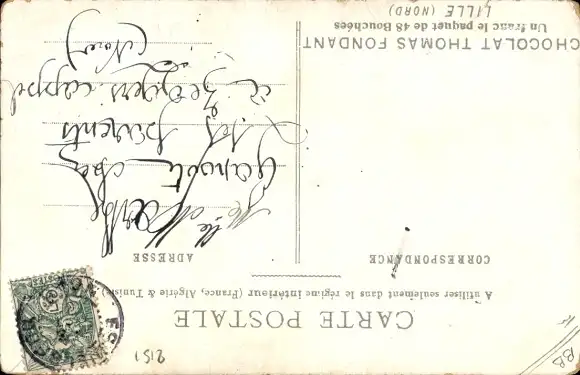 CARTE POSTALE
A utiliser seulement dans le régime intérieur (France, Algérie & Tunisie)
CORRESPONDANCE
ADRESSE
Melle Marthe
chez
ses parents
à Zegers cappel
(Nord)
CHOCOLAT THOMAS FONDANT
Un franc le paquet de 48 Bouchées
LILLE (NORD)
2151
BB